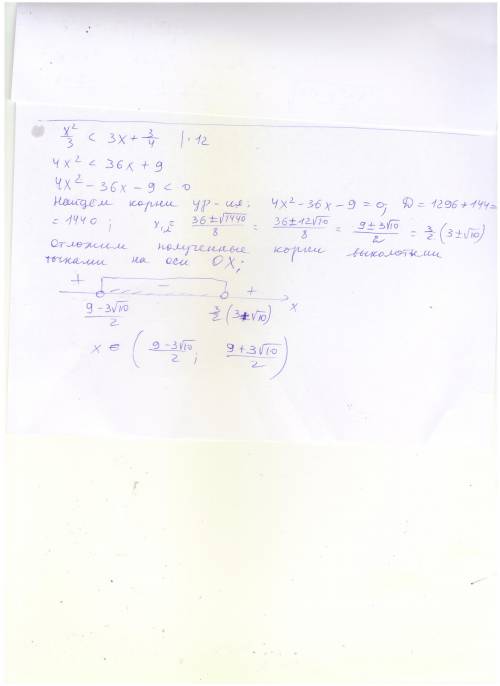 x²/3 < 3x + 3/4 | · 12
4x² < 36x + 9
4x² - 36x - 9 < 0
Найдём корни ур-ия: 4x² - 36x - 9 = 0; D = 1296 + 144 =
= 1440; x₁,₂ = (36 ± √1440)/8 = (36 ± 12√10)/8 = (9 ± 3√10)/2 = 3/2 (3 ± √10)
Отложим полученные корни выколотыми
точками на оси OX;
+ - +
(9 - 3√10)/2 3/2 (3 + √10) x
x ∈ ( (9 - 3√10)/2 ; (9 + 3√10)/2 )